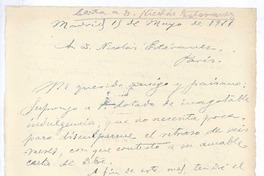 Carta a D. Nicolás Estévanez
Madrid, 15 de Mayo de 1911
A D. Nicolás Estévanez.
París.
Mi querido amigo y paisano:
Supongo a V. dotado de inagotable
indulgencia; que no necesita poca,
para disculparme el retraso de seis
meses, con que contesto a su amable
carta de Dbre.
A fin de este mes, tendré el